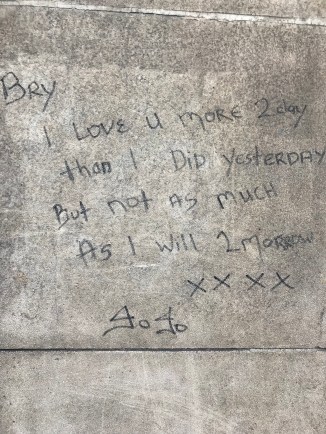 BRY
I LOVE U MORE 2day
than I DID YESTERDAY
But not AS MUCH
AS I will 2MORROW
XXXX
JoJo